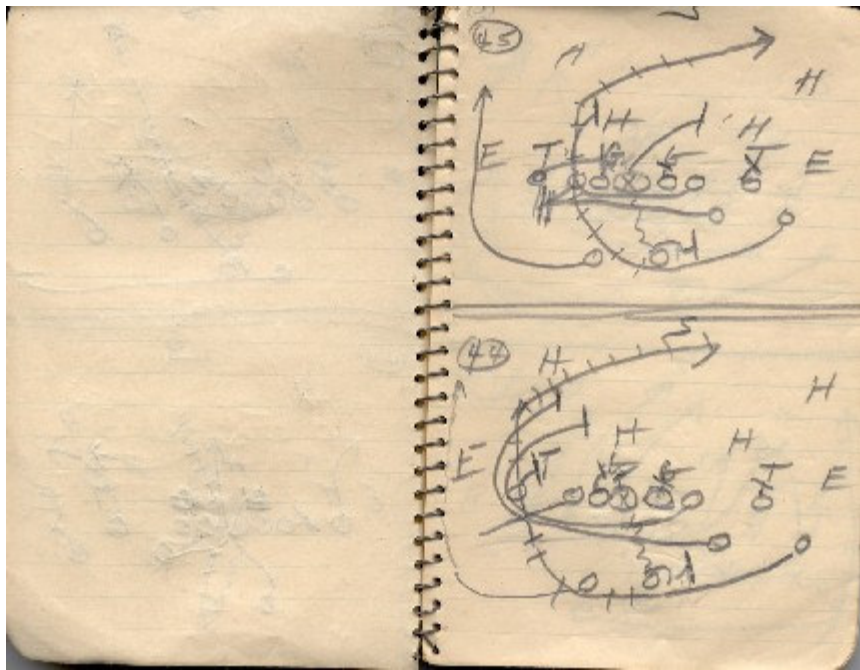 S
45
H
H
H H
E T G G T E
S
44
H
H
H
H
E T G G T E